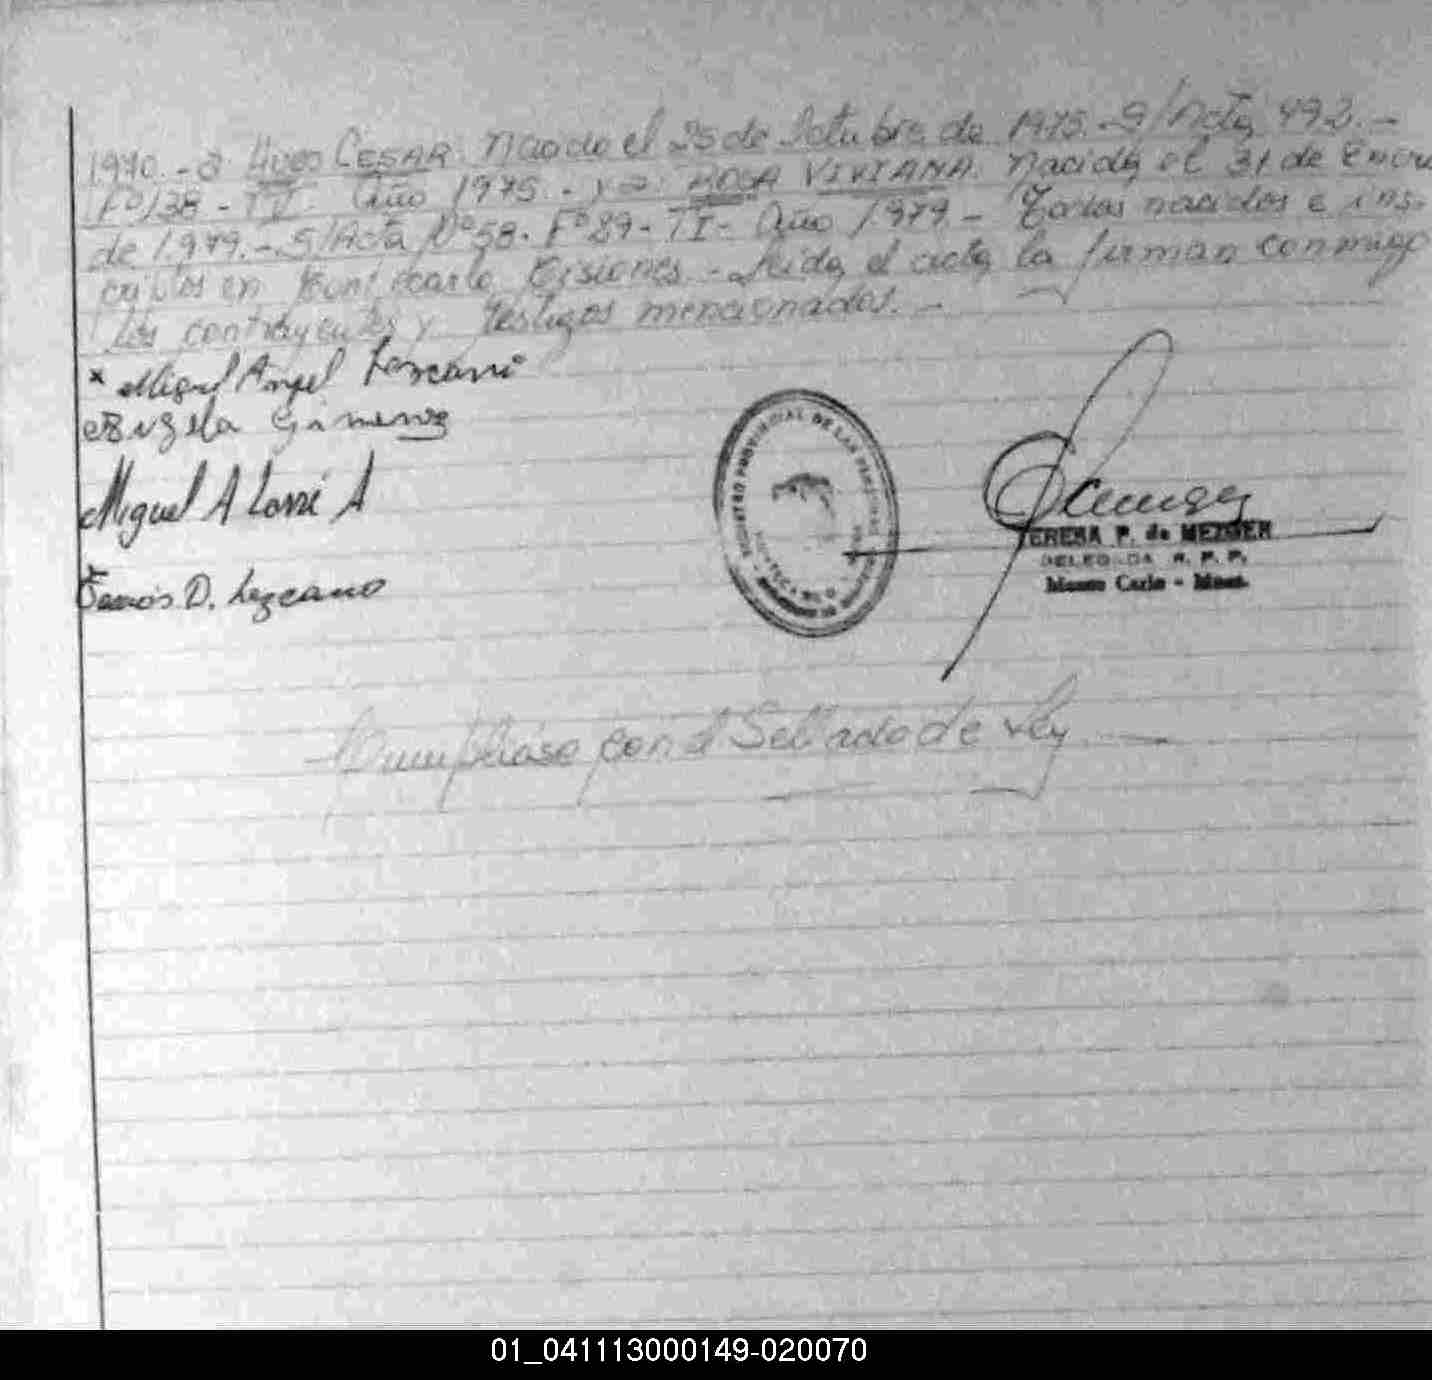 1970.- a Hugo CESAR. Nacido el 25 de Octubre de 1975.- S/Acta 493.-
Fº138 - TV. Año 1975.- y a: ROSA VIVIANA. Nacida el 31 de Enero
de 1.979.- S/Acta Nº58. Fº89- TI- Año 1.979.- Todos nacidos e ins-
criptos en Montecarlo Misiones.- Leida el acta, la firman conmigo
los contrayentes y testigos mencionados.-
x Miguel Angel Lezcano
Gimenez
Miguel A
D. Lezcano
REGISTRO PROVINCIAL DE LAS PERSONAS
TERESA P. de MEZGER
DELEGADA R. P. P.
Monte Carlo - Mnes.
Cumplióse con el Sellado de Ley
01_041113000149-020070